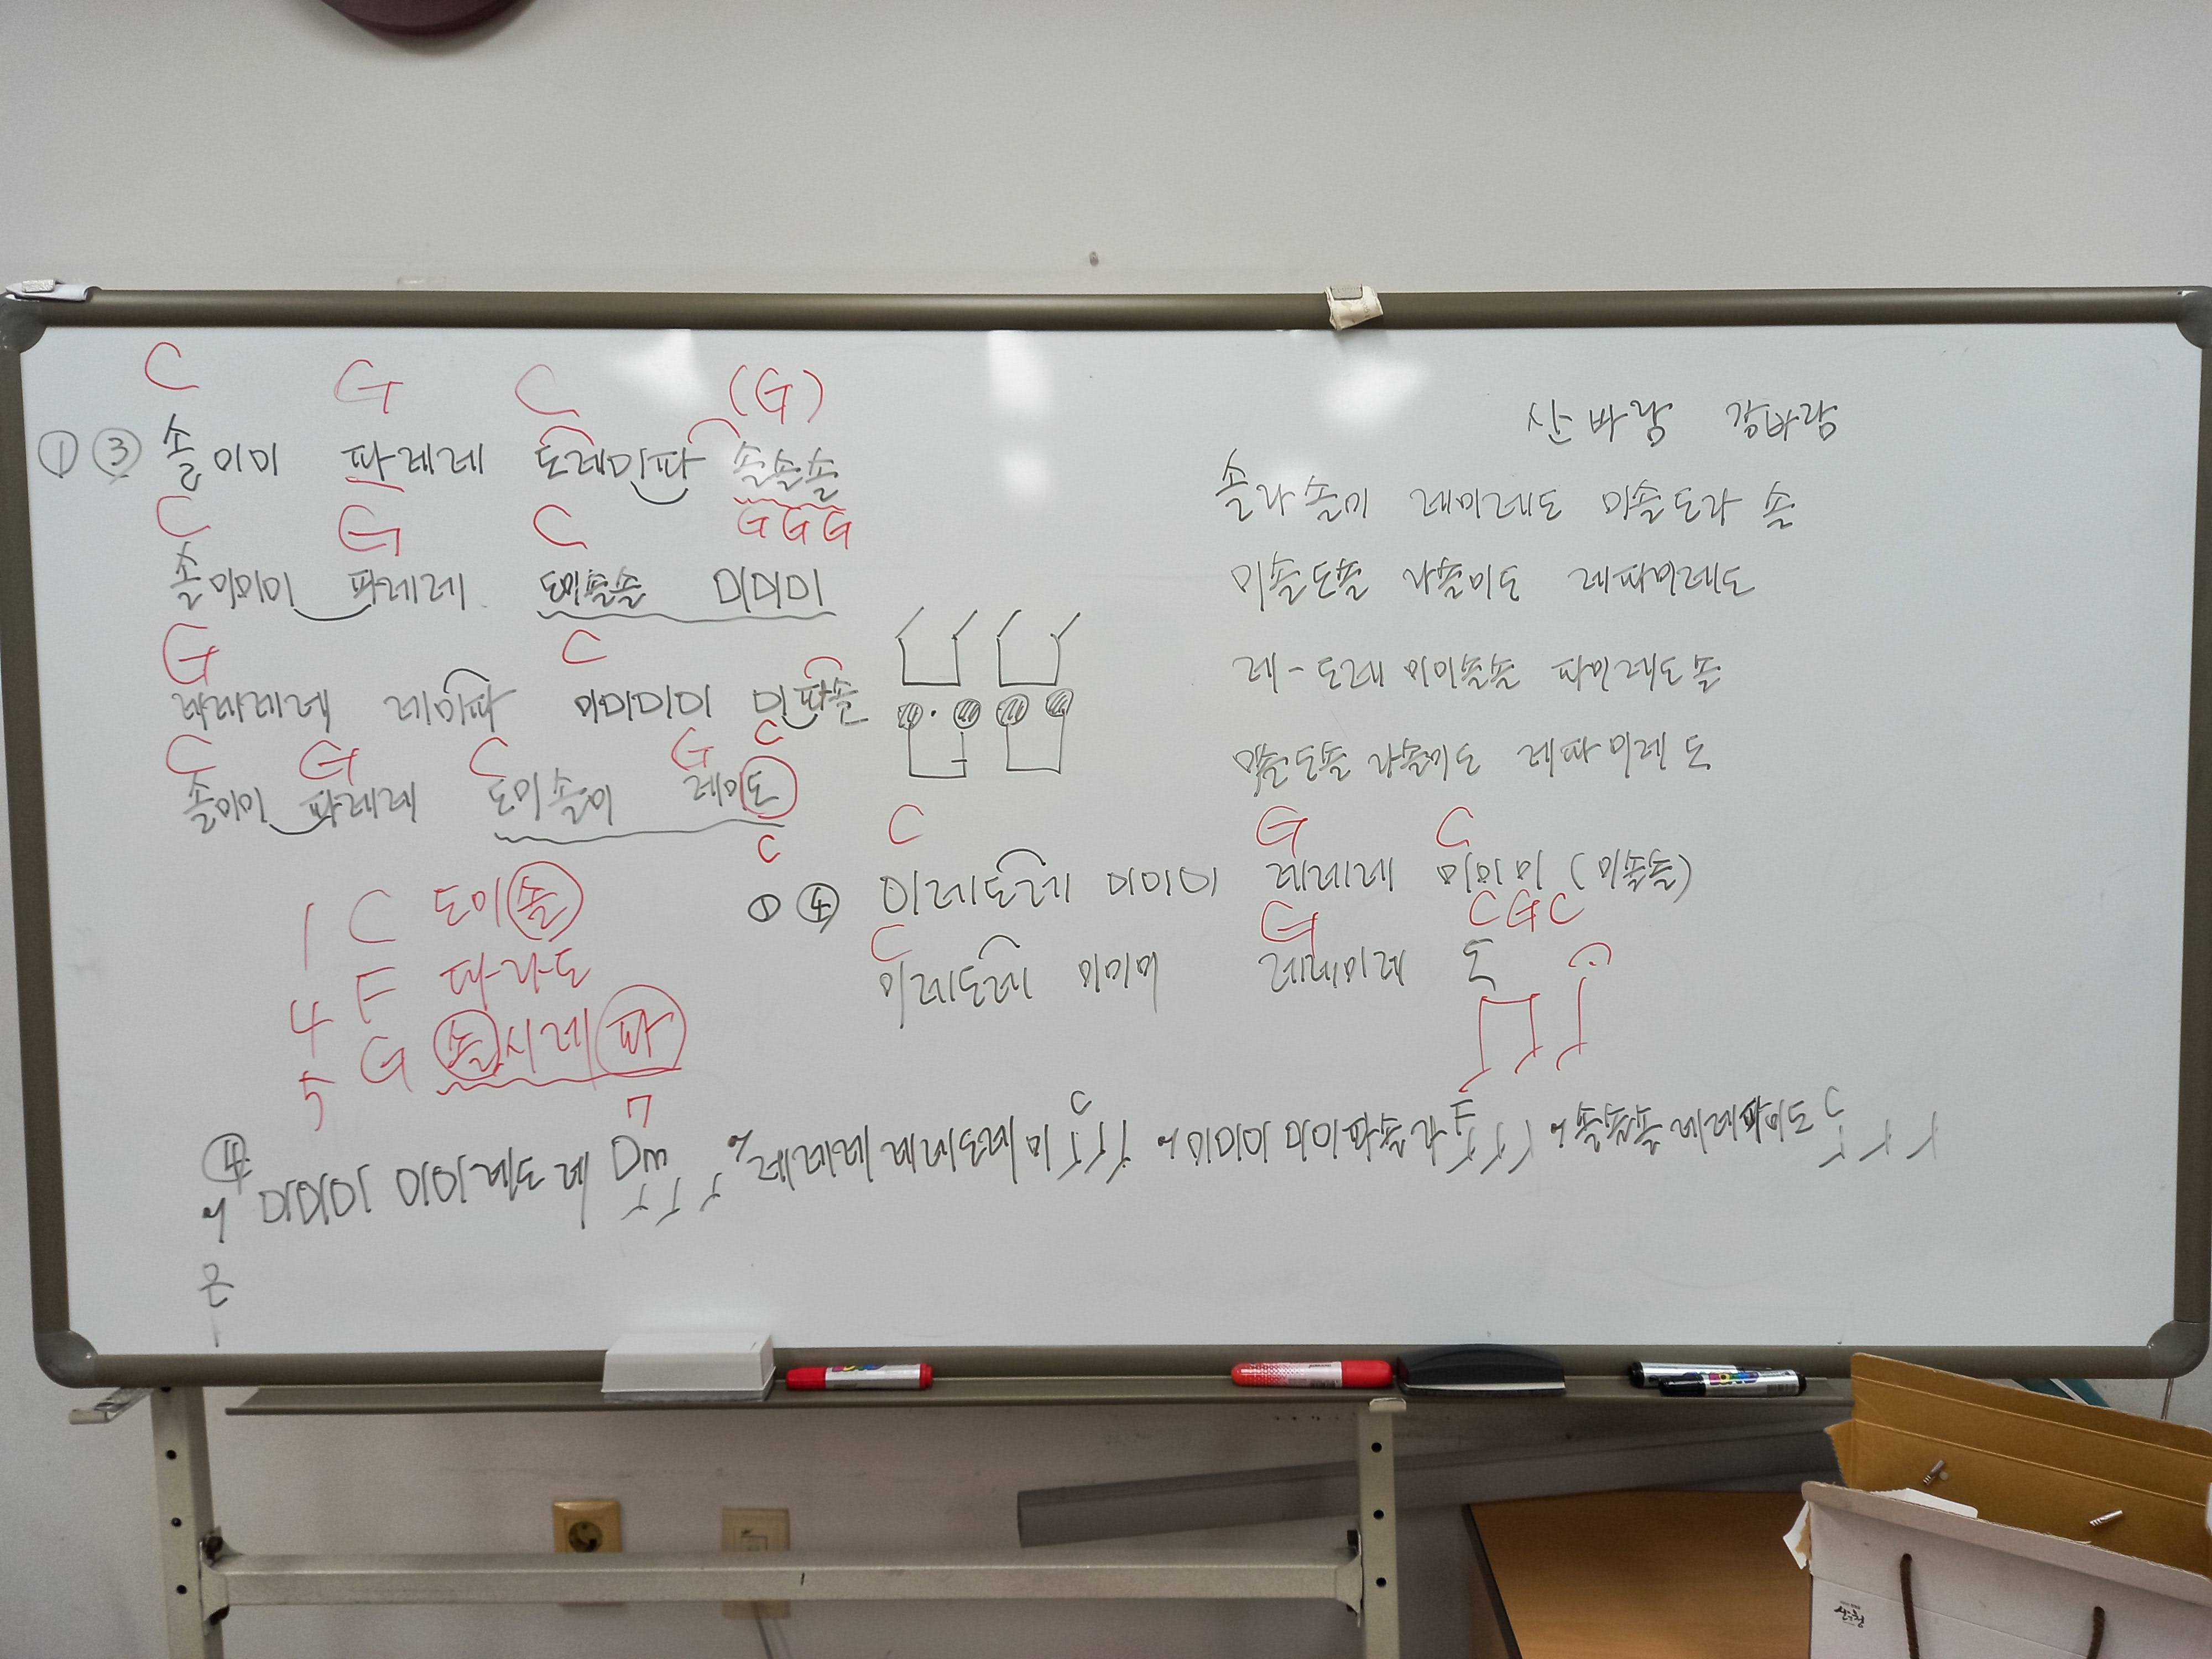 C G C (G)
① ③ 솔미미 파레레 도레미파 솔솔솔
C G C G G G
솔미미미 파레레 도미솔솔 미미미
G C
레레레레 레미파 미미미미 미파솔
C G C G C
솔미미 파레레 도미솔미 레미도
C
1 C 도미솔
4 F 파라도
5 G 솔시레파
7
산바람 강바람
솔라솔미 레미레도 미솔도라 솔
미솔도솔 라솔미도 레파미레도
레-도레 미미솔솔 파미레도솔
미솔도솔 라솔미도 레파미레 도
C G C
① ④ 미레도레 미미미 레레레 미미미 (미솔솔)
C G C G C
미레도레 미미미 레레미레 도
④ 미미미 미미레도레 Dm 레레레 레레도레미 C 미미미 미미파솔라 F 솔솔솔 레레파미도 C
은